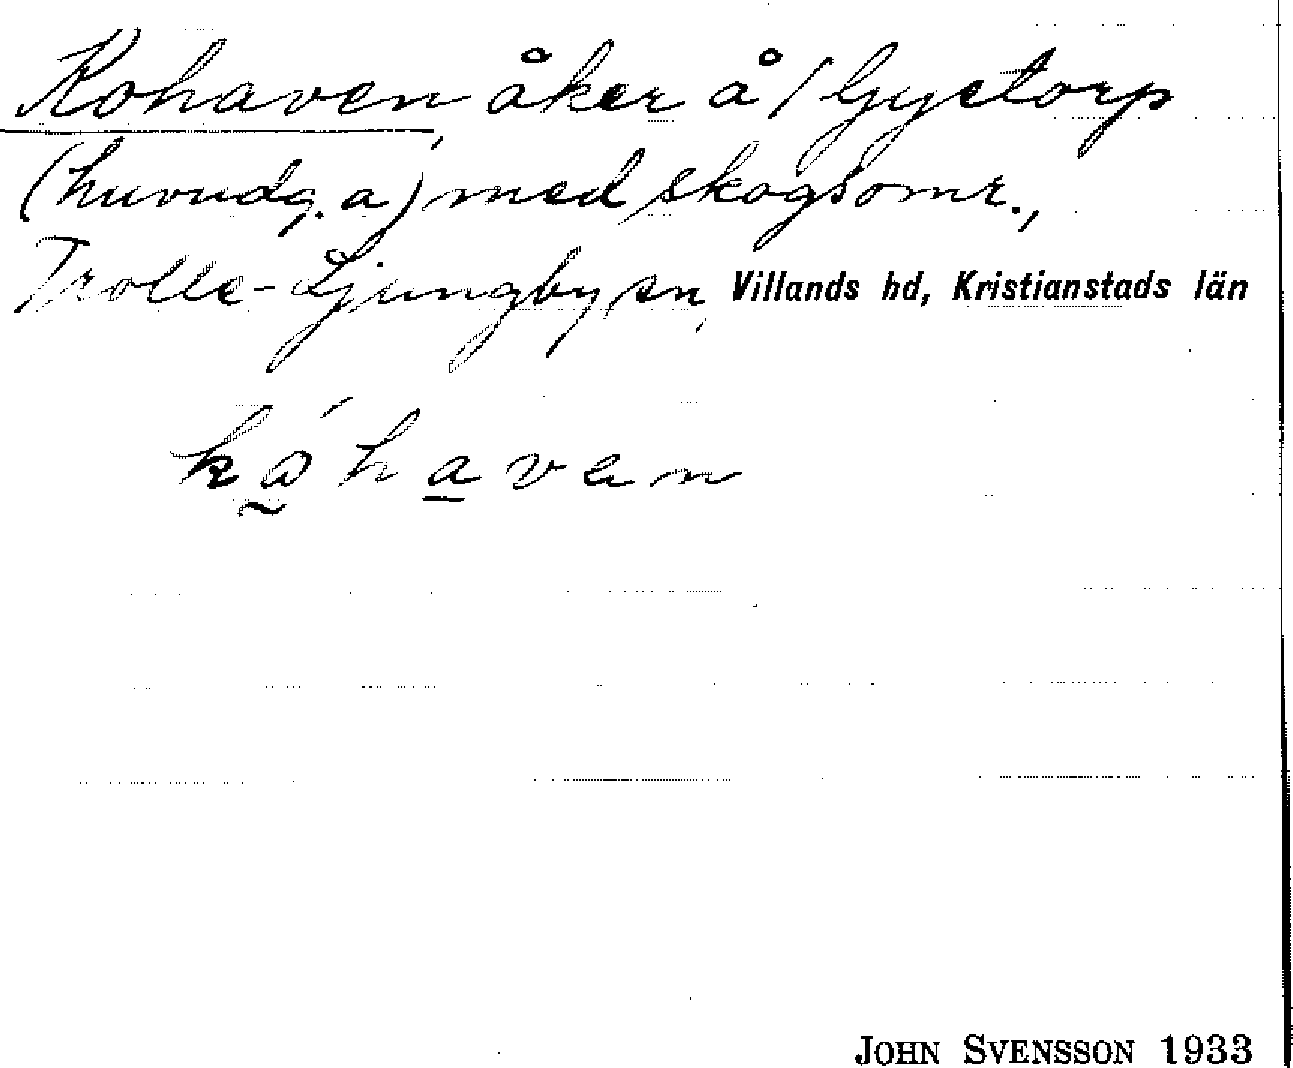 Kohaven, åker å Gyetorp
(huvudg. a) med skogsomr.,
Trolle-Ljungby sn, Villands hd, Kristianstads län
kǿhaven
JOHN SVENSSON 1933